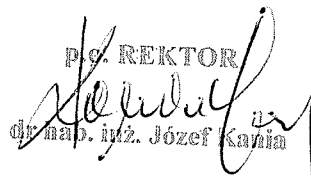 p.o. REKTOR
dr hab. inż. Józef Kania